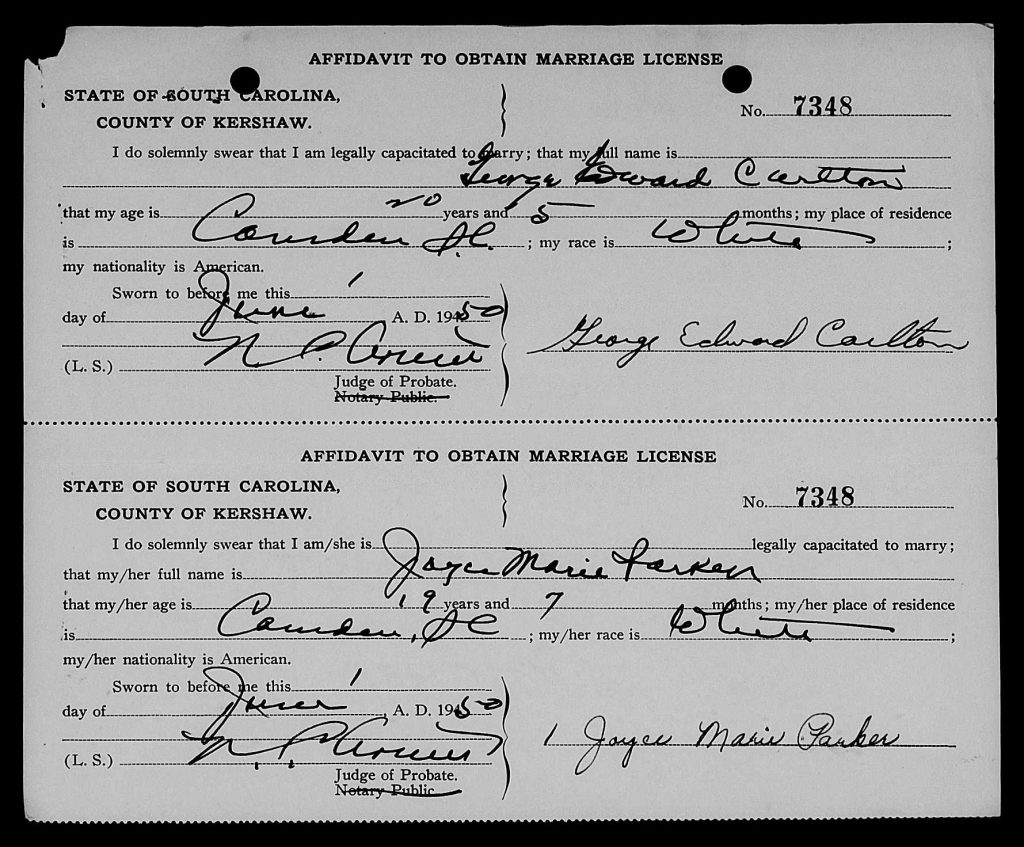 AFFIDAVIT TO OBTAIN MARRIAGE LICENSE
STATE OF SOUTH CAROLINA,
COUNTY OF KERSHAW.
No. 7348
I do solemnly swear that I am legally capacitated to marry; that my full name is
George Edward Carlton
that my age is 20 years and 5 months; my place of residence
is Camden S.C. ; my race is White ;
my nationality is American.
Sworn to before me this 1
day of June A. D. 19450
George Edward Carlton
(L. S.) N. C.
Judge of Probate.
Notary Public.
AFFIDAVIT TO OBTAIN MARRIAGE LICENSE
STATE OF SOUTH CAROLINA,
COUNTY OF KERSHAW.
No. 7348
I do solemnly swear that I am/she is legally capacitated to marry;
that my/her full name is Joyce Marie Parker
that my/her age is 19 years and 7 months; my/her place of residence
is Camden, SC ; my/her race is White ;
my/her nationality is American.
Sworn to before me this 1
day of June , A. D. 19450
1 Joyce Marie Parker
(L. S.) N. C.
Judge of Probate.
Notary Public